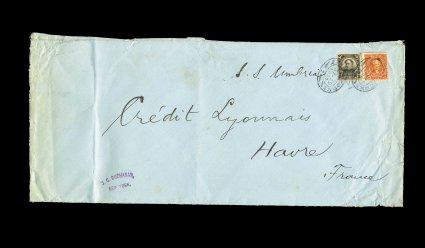 S. S. Umbria
Crédit Lyonnais
Havre
France
NEW YORK.